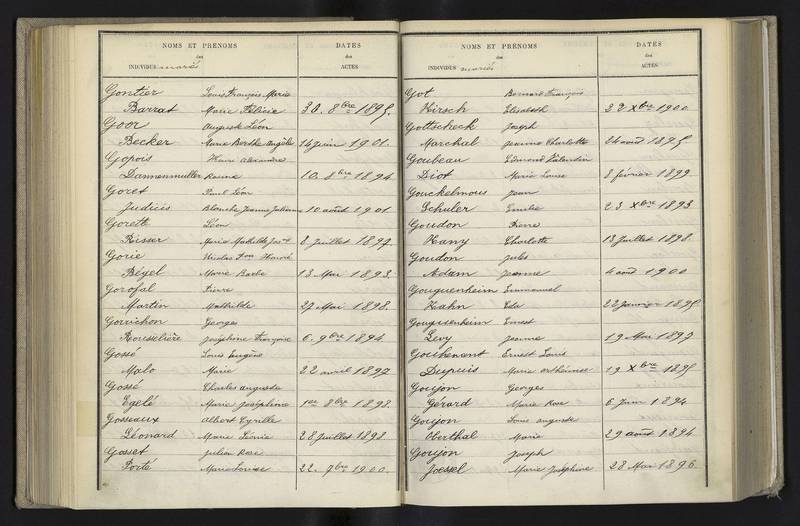 NOMS ET PRÉNOMS
des
INDIVIDUS mariés
DATES
des
ACTES
Gontier Louis François Marie
Barrat Marie Félicie 30. 8bre 1895.
Goor Auguste Léon
Becker Marie Berthe Angèle 14 juin 1901.
Gopois Henri Alexandre
Dannenmuller Rosine 10. 8bre 1894
Goret Paul Léon
Judicis Blanche Jeanne Julienne 10 août 1901
Goreth Léon
Risser Marie Mathilde 8 juillet 1897.
Gorie Nicolas Honoré
Béyel Marie Barbe 13 Mai 1893.
Gorofal Pierre
Martin Mathilde 27 Mai 1898.
Gorrichon Georges
Rousselière Joséphine Françoise 6. 9bre 1894
Gossé Louis Eugène
Malo Marie 22 avril 1897
Gossé Charles Auguste
Egelé Marie Joséphine 1er 8bre 1898.
Gosseaux Albert Cyrille
Léonard Marie Léonie 28 juillet 1898
Gosset Julien René
Porté Marie Louise 22. 9bre 1900.
NOMS ET PRÉNOMS
des
INDIVIDUS mariés
DATES
des
ACTES
Got Bernard François
Hirsch Elisabeth 22 Xbre 1900
Gottscheck Joseph
Marchal Jeanne Charlotte 24 août 1895
Goubeau Edmond Valentin
Diot Marie Louise 8 février 1899
Gouckelmous Jean
Schuler Emilie 23 Xbre 1893
Goudon Pierre
Hany Charlotte 13 juillet 1898.
Goudon Jules
Adam Jeanne 4 août 1900
Gouguenheim Emmanuel
Hahn Eda 22 janvier 1895
Gouguenheim Ernest
Levy Jeanne 19 Mai 1897
Gouhenant Ernest Louis
Dupuis Marie 19 Xbre 1895
Goujon Georges
Gérard Marie Rose 6 juin 1894.
Goujon Louis Auguste
Oberthal Marie 29 août 1894
Goujon Joseph
Joessel Marie Joséphine 28 Mai 1896.